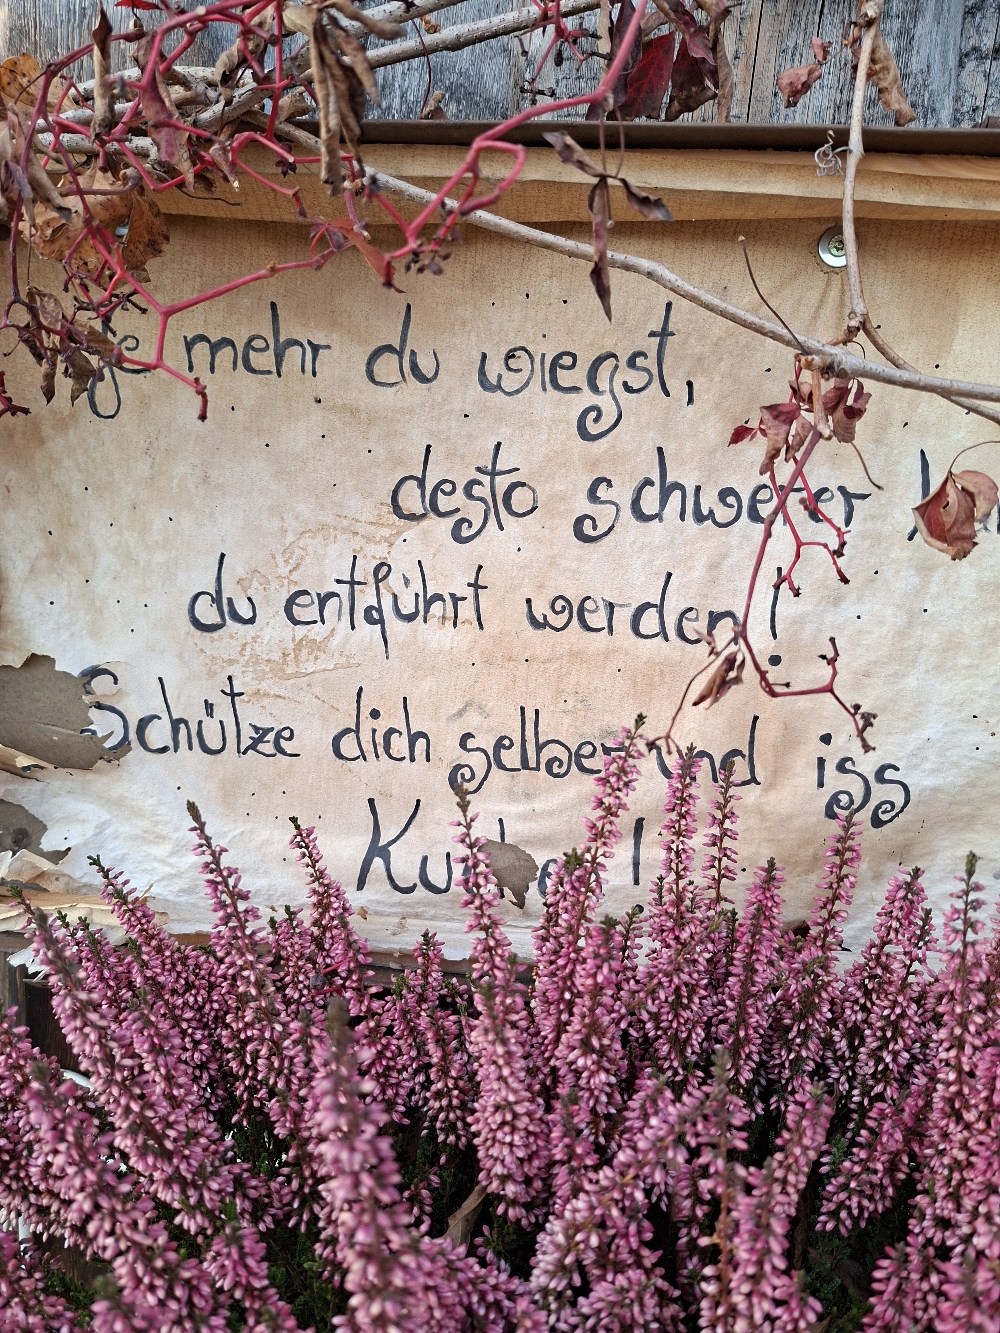 Je mehr du wiegst,
desto schwerer
du entführt werden!
Schütze dich selber und iss
Kuchen!